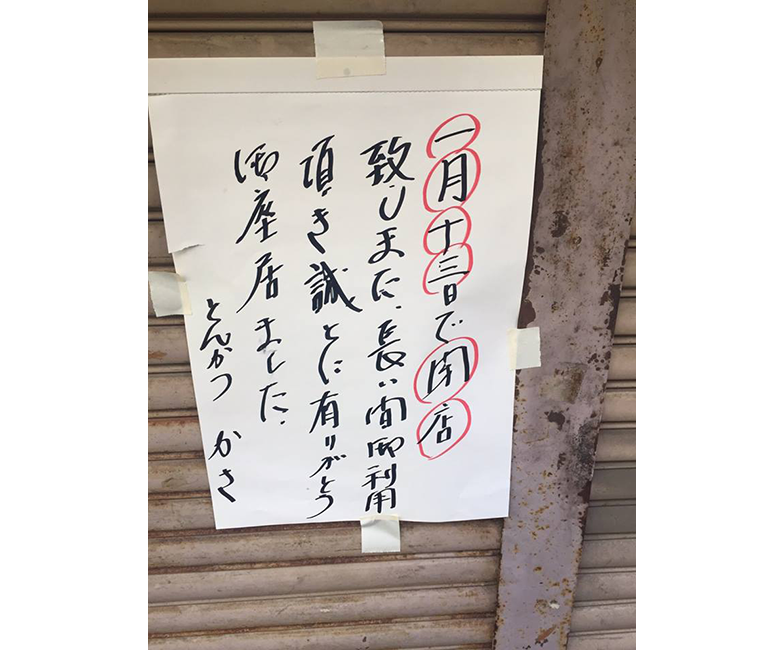 一月十三日で閉店
致しました、長い間御利用
頂き誠とに有りがとう
御座居ました、
とんかつ かさ